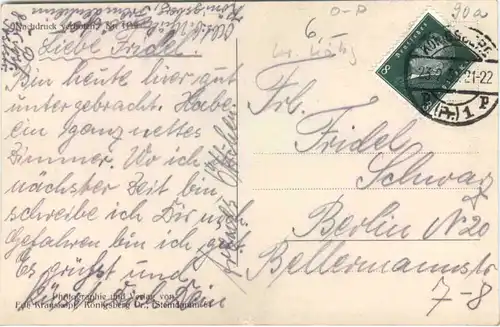 Nachdruck verboten. No.
Liebe Fridel
Bin heute hier gut
untergebracht. Habe
ein ganz nettes
Zimmer. Wo ich
nächster Zeit bin
schreibe ich Dir noch
Gefahren bin ich gut
Es grüsst und
küsst Dich Dein
Photographie und Verlag von
Königsberg Pr., Steindamm
6,-
O-P
90a
Deutsches
8
21-22
(Pr.) 1 P
Frl.
Fridel
Schwarz
Berlin N 20
Bellermannstr
7-8